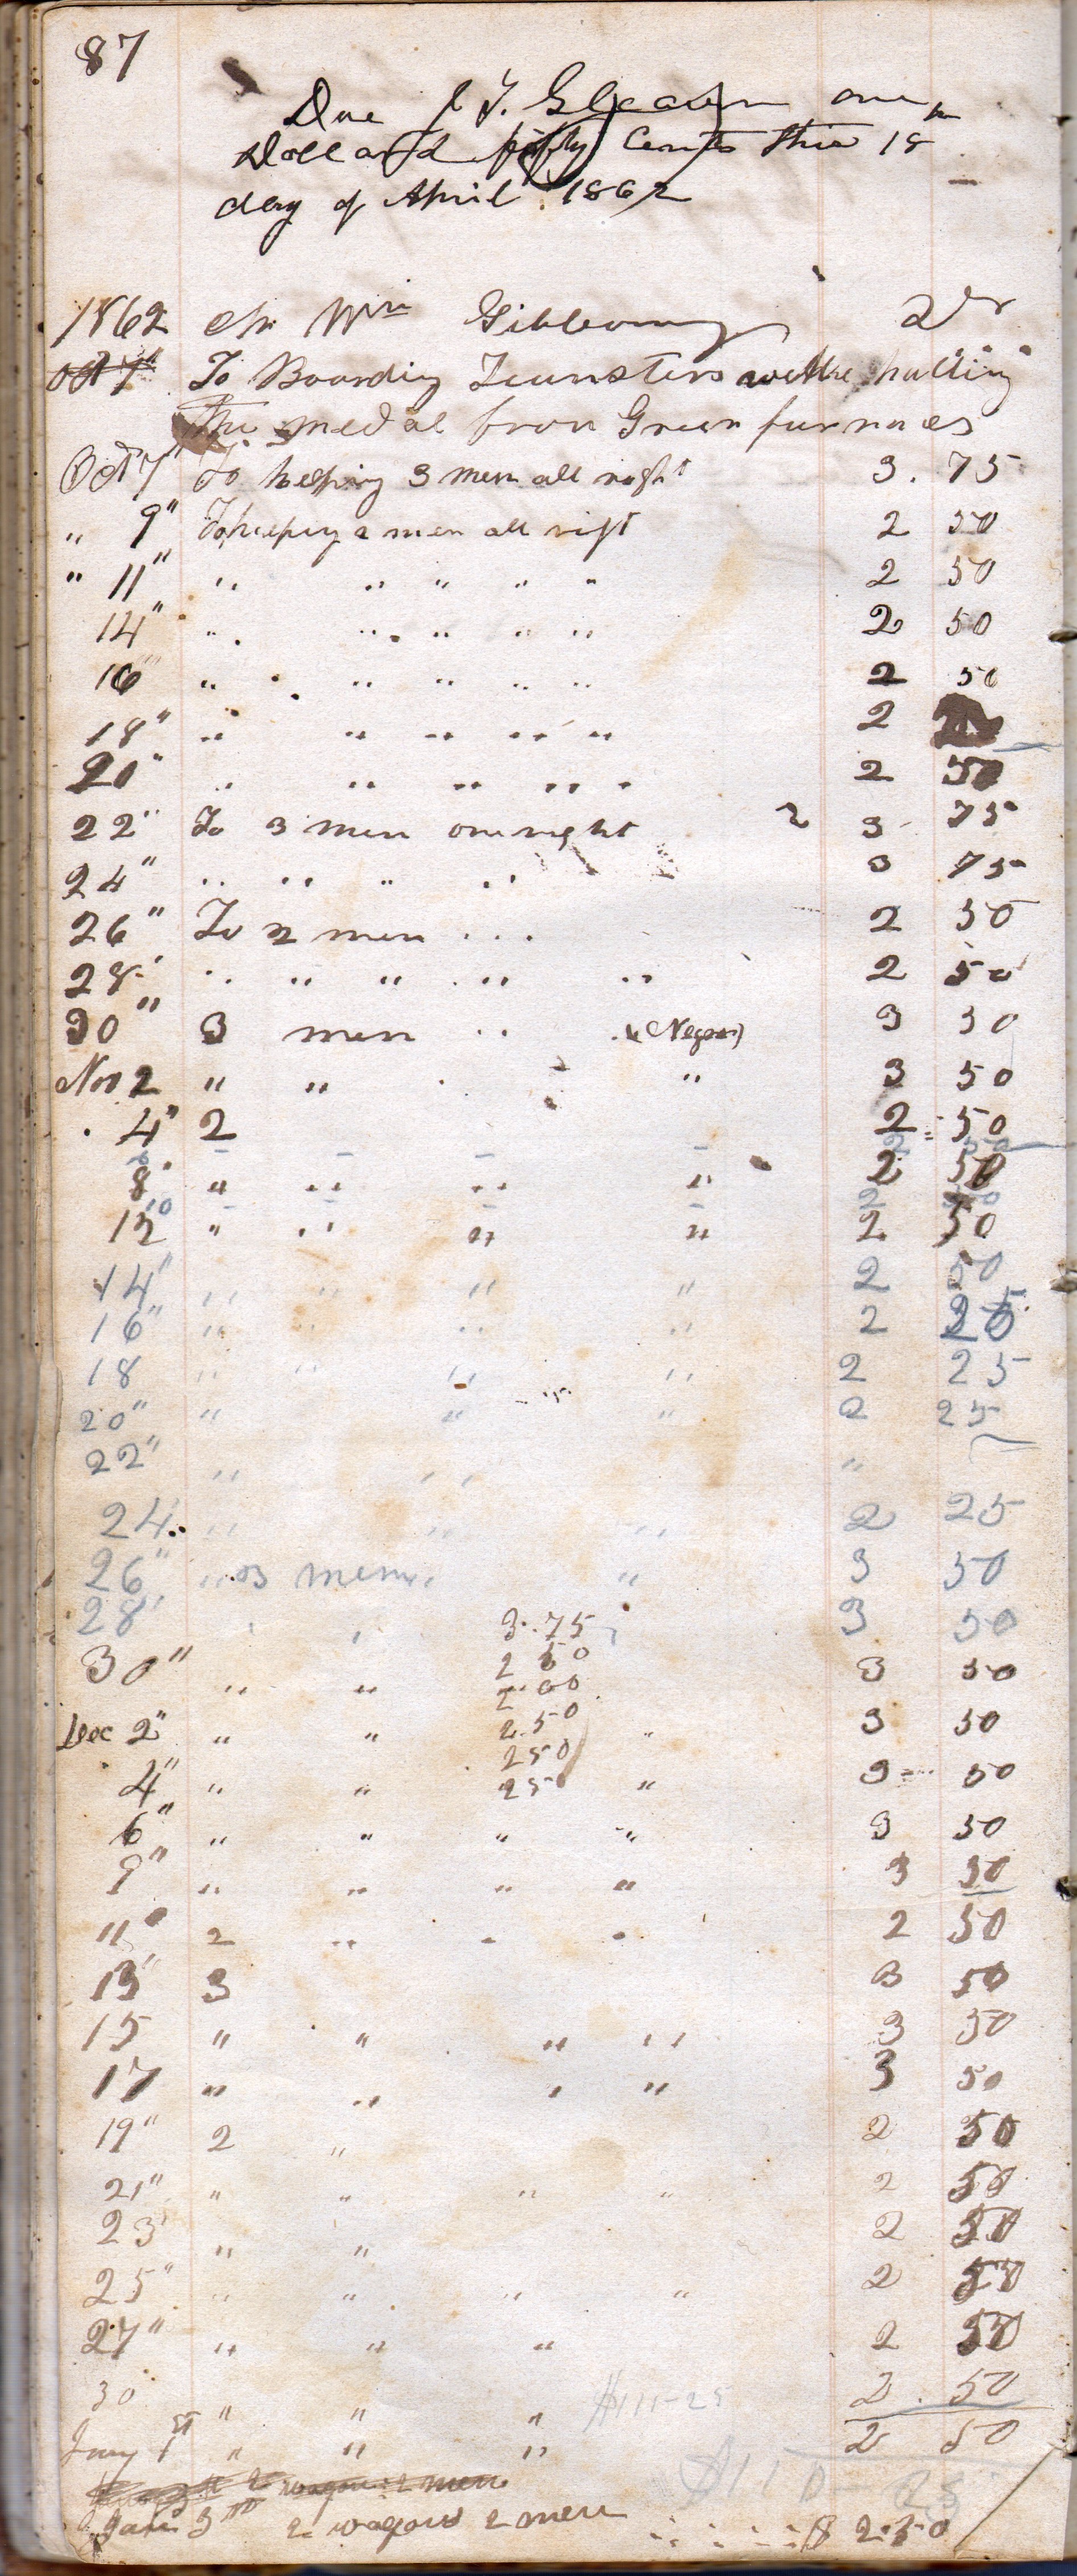 87
Due J. T. one
Doll and fifty Cents this 18th
day of April 1862
1862 Mr Wm Dr
Oct 7" To Boarding Teamsters hauling
The medal from Green furnaes
Oct 7" To keeping 3 men all night 3. 75
" 9" To keeping 2 men all night 2 50
" 11" " " " " " 2 50
14" " " " " " 2 50
16" " " " " " " 2 50
18" " " " " " 2
20" " " " " " 2 50
22" To 3 men one night 2 3 75
24" " " " " 3 75
26" To 2 men " " 2 50
28" " " " " " 2 50
30" 3 men " " (Negros) 3 50
Nov 2 " " " 3 50
" 4" 2 2 = 50
6 - - - - 2 50
8" " " " " 2 50
10 - - - - 2 50
12 " " " " 2 50
14" " " " " 2 50
16" " " " " 2 25
18 " " " " 2 25
20" " " " 2 25
22" " " "
24 " " " 2 25
26" " 3 men " " 3 50
28" " " 3.75 3 50
2 50
30" " " 3 50
2 00
Dec 2" " " 2.50 " 3 50
2 50
4" " " 25 " 3 = 50
6" " " " " 3 50
9" " " " " 3 50
11" 2 " " " 2 50
13" 3 3 50
15 " " " " 3 50
17 " " " " 3 50
19" 2 " 2 50
21" " " " " 2 50
23" " " 2 50
25" " " " " 2 50
27" " " " 2 50
30 " " " $111-25 2.50
Jany 1st " " " 2 50
2 wagons 2 men
$110- 25
Jan 3rd 2 wagons 2 men $ 2.50